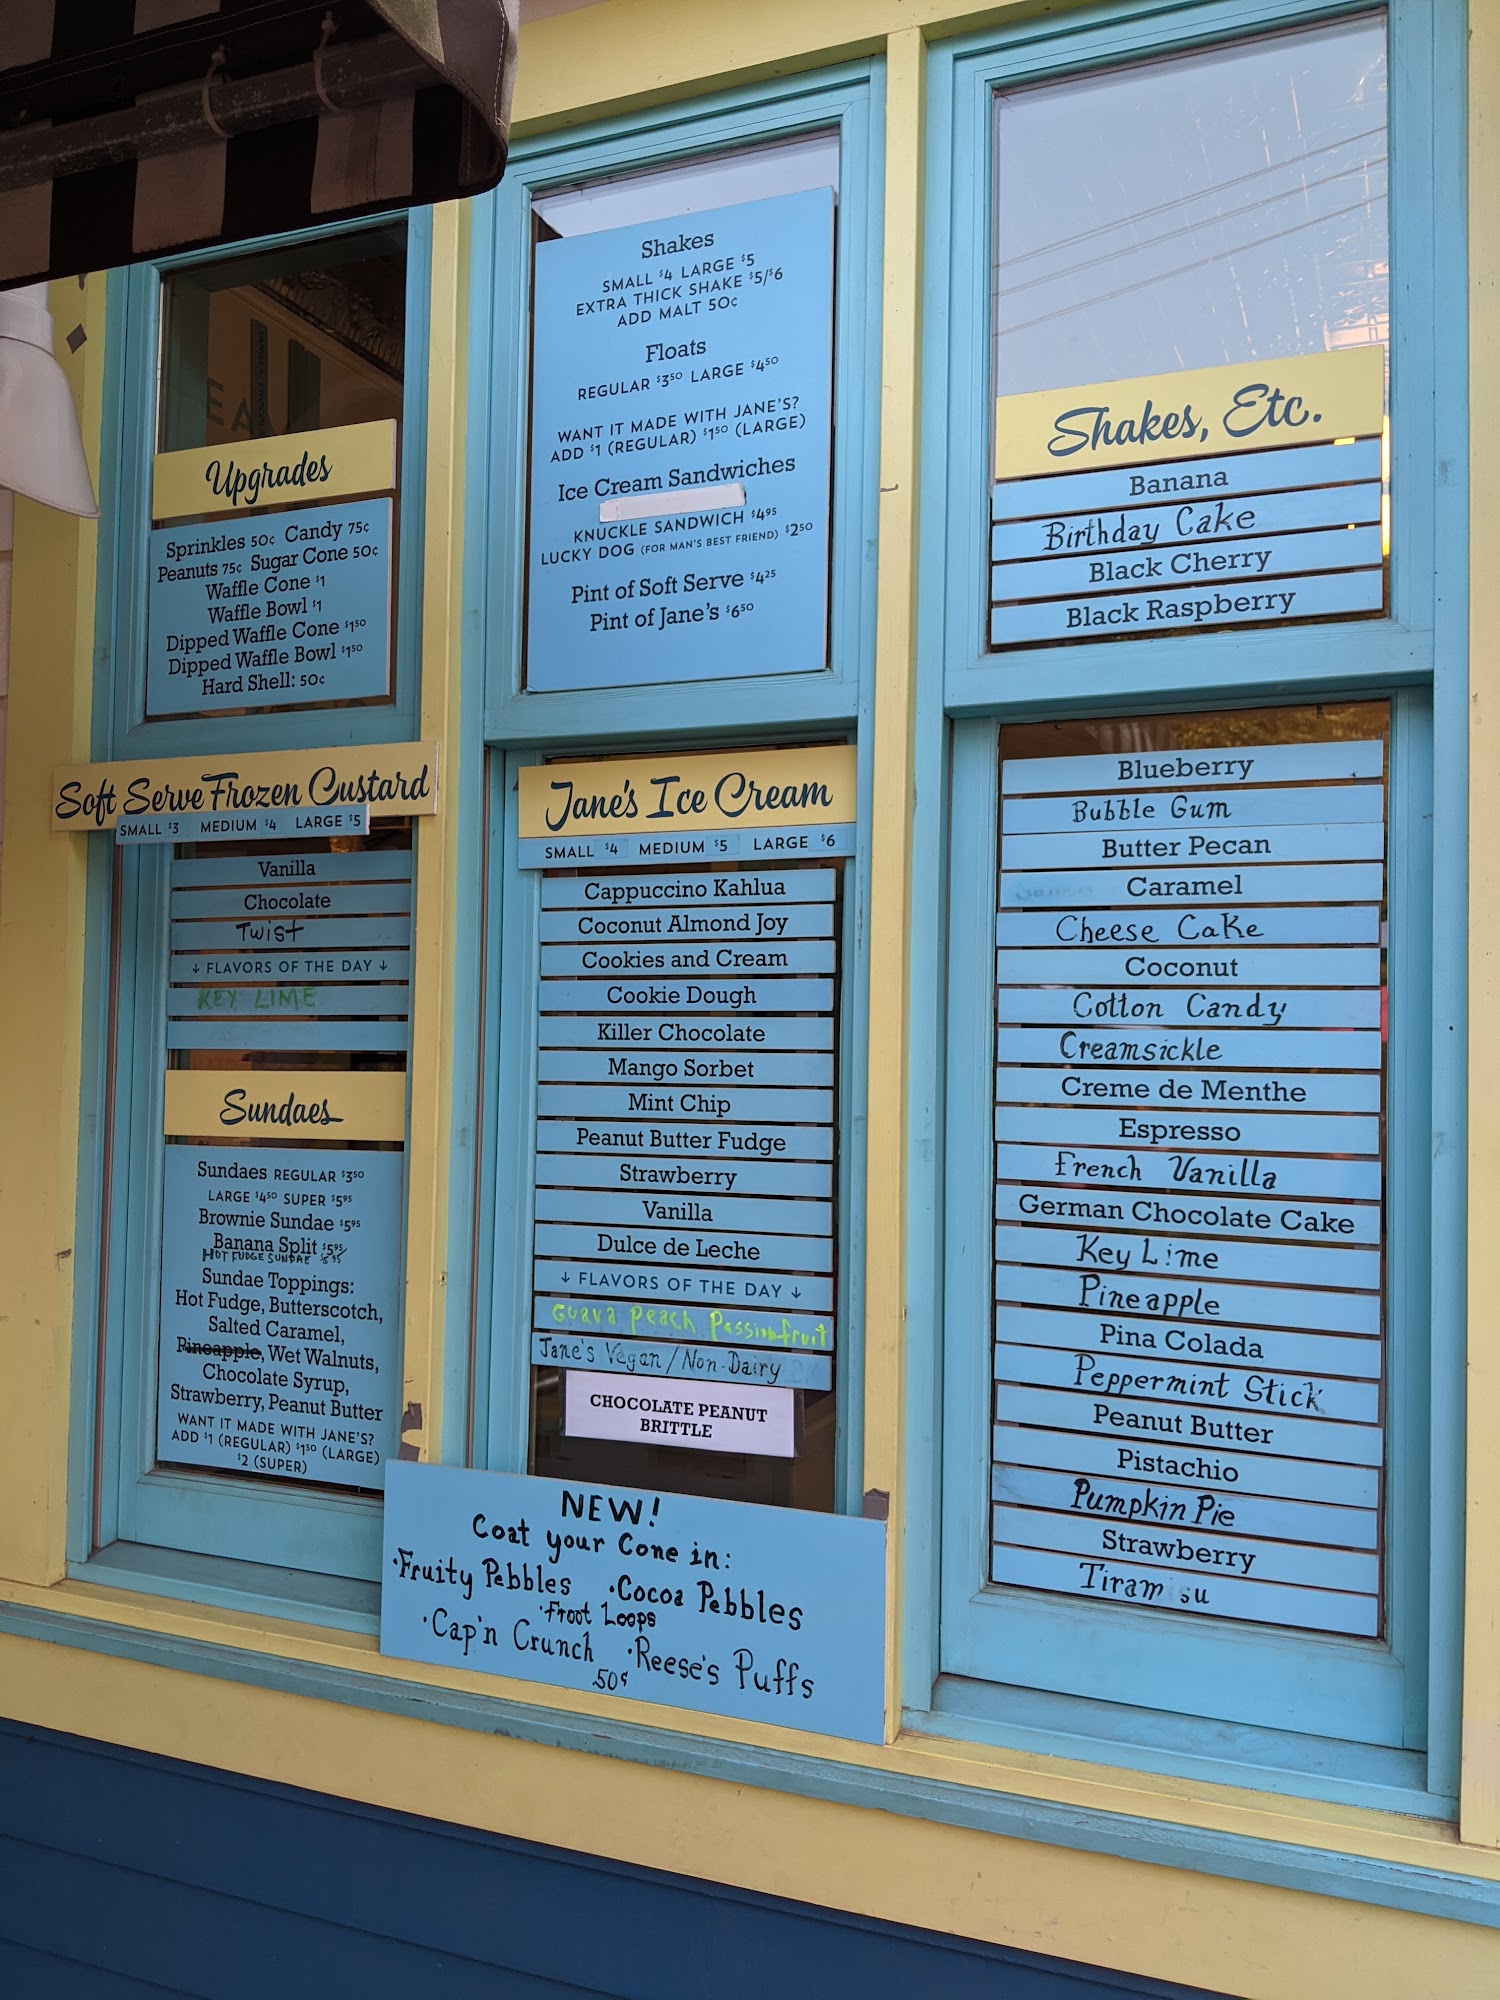 Upgrades
Sprinkles 50¢ Candy 75¢
Peanuts 75¢ Sugar Cone 50¢
Waffle Cone $1
Waffle Bowl $1
Dipped Waffle Cone $1.50
Dipped Waffle Bowl $1.50
Hard Shell: 50¢
Soft Serve Frozen Custard
SMALL $3 MEDIUM $4 LARGE $5
Vanilla
Chocolate
Twist
↓ FLAVORS OF THE DAY ↓
KEY LIME
Sundaes
Sundaes REGULAR $3.50
LARGE $4.50 SUPER $5.95
Brownie Sundae $5.95
Banana Split $5.95
HOT FUDGE SUNDAE
Sundae Toppings:
Hot Fudge, Butterscotch,
Salted Caramel,
Pineapple, Wet Walnuts,
Chocolate Syrup,
Strawberry, Peanut Butter
WANT IT MADE WITH JANE'S?
ADD $1 (REGULAR) $1.50 (LARGE)
$2 (SUPER)
Shakes
SMALL $4 LARGE $5
EXTRA THICK SHAKE $5/$6
ADD MALT 50¢
Floats
REGULAR $3.50 LARGE $4.50
WANT IT MADE WITH JANE'S?
ADD $1 (REGULAR) $1.50 (LARGE)
Ice Cream Sandwiches
KNUCKLE SANDWICH $4.95
LUCKY DOG (FOR MAN'S BEST FRIEND) $2.50
Pint of Soft Serve $4.25
Pint of Jane's $6.50
Jane's Ice Cream
SMALL $4 MEDIUM $5 LARGE $6
Cappuccino Kahlua
Coconut Almond Joy
Cookies and Cream
Cookie Dough
Killer Chocolate
Mango Sorbet
Mint Chip
Peanut Butter Fudge
Strawberry
Vanilla
Dulce de Leche
↓ FLAVORS OF THE DAY ↓
Guava Peach Passionfruit
Jane's Vegan / Non-Dairy
CHOCOLATE PEANUT
BRITTLE
NEW!
Coat your Cone in:
·Fruity Pebbles ·Cocoa Pebbles
·Froot Loops
·Cap'n Crunch ·Reese's Puffs
50¢
Shakes, Etc.
Banana
Birthday Cake
Black Cherry
Black Raspberry
Blueberry
Bubble Gum
Butter Pecan
Caramel
Cheese Cake
Coconut
Cotton Candy
Creamsickle
Creme de Menthe
Espresso
French Vanilla
German Chocolate Cake
Key Lime
Pineapple
Pina Colada
Peppermint Stick
Peanut Butter
Pistachio
Pumpkin Pie
Strawberry
Tiramisu